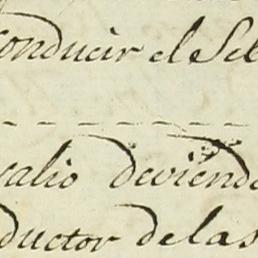 conducir el Seb
valio deviend
ductor de las